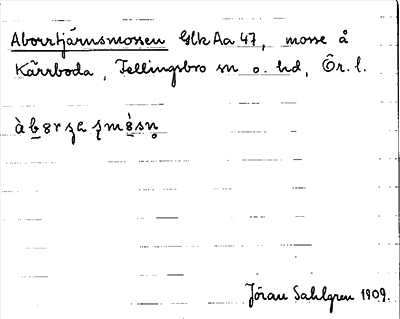 Aborrtjärnsmossen GlkAa 47, mosse å
Kärrboda, Fellingsbro sn o. hd, Ör. l.
Jöran Sahlgren 1909.